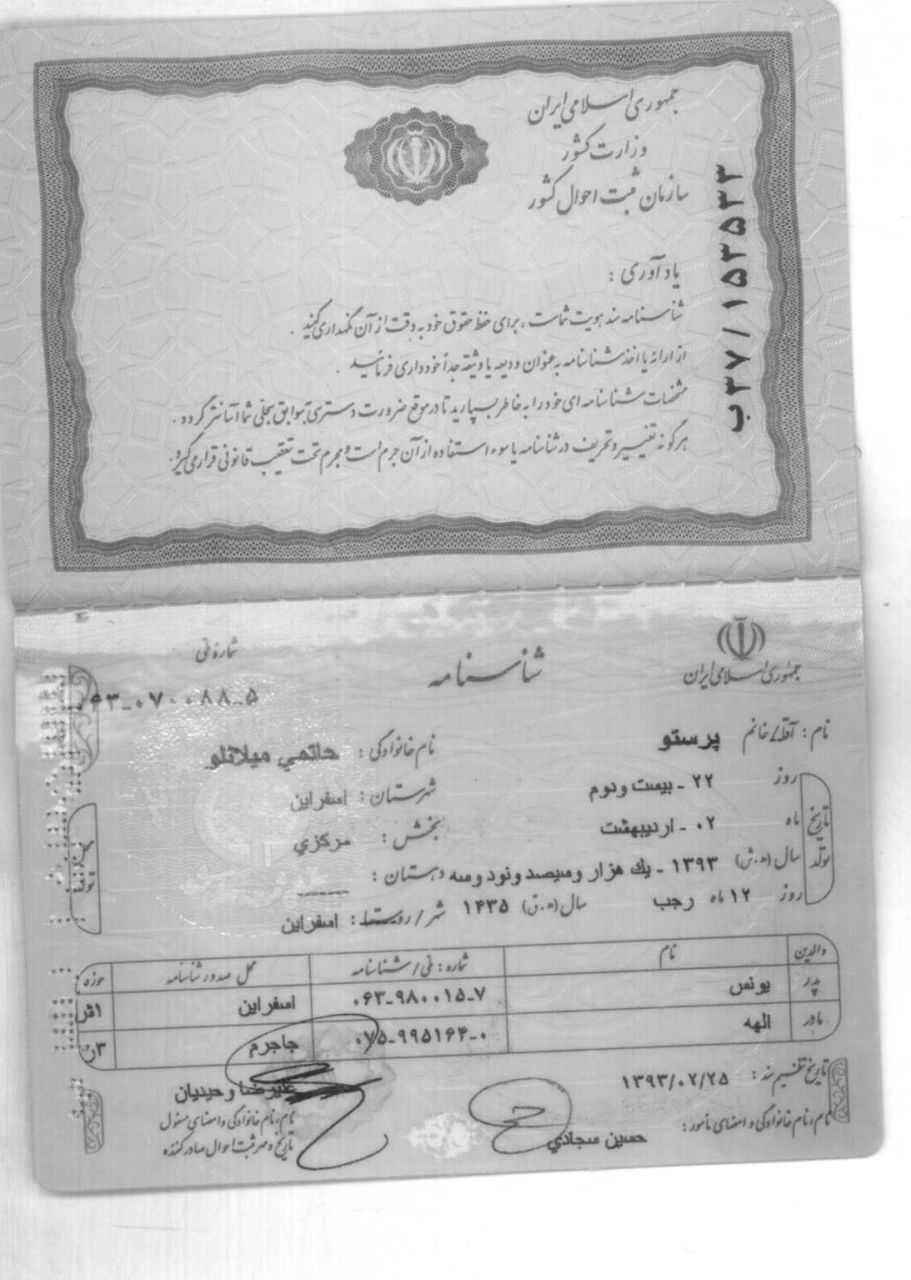 جمهوری اسلامی ایران
وزارت کشور
سازمان ثبت احوال کشور
ب۳۷/۱۵۳۵۳۳
یادآوری :
شناسنامه سند هویت شماست ، برای حفظ حقوق خود به دقت از آن نگهداری کنید .
از ارائه یا اخذ شناسنامه به عنوان ودیعه یا وثیقه جداً خودداری فرمائید .
مشخصات شناسنامه ای خود را به خاطر بسپارید تا در موقع ضرورت دسترسی به سوابق سجلی شما آسانتر گردد .
هرگونه تغییر و تحریف در شناسنامه یا سوء استفاده از آن جرم است و مجرم تحت تعقیب قانونی قرار می گیرد.
جمهوری اسلامی ایران
شناسنامه
شماره ملی
۰۶۳-۰۷۰۰۸۸-۵
نام : آقا/خانم پرستو
نام خانوادگی : حاتمي ميلانلو
تاریخ تولد
روز ۲۲ - بيست ودوم
شهرستان : اسفراين
ماه ۰۲ - ارديبهشت
بخش : مركزي
سال (ه.ش) ۱۳۹۳ - يك هزار وسيصد ونود وسه
دهستان : --------
روز ۱۲ ماه رجب سال (ه.ق) ۱۴۳۵
شهر/روستا : اسفراين
والدین نام شماره : ملی/شناسنامه محل صدور شناسنامه حوزه
پدر يونس ۰۶۳-۹۸۰۰۱۵-۷ اسفراين ۱ش
مادر الهه ۰۷۵-۹۹۵۱۶۴-۰ جاجرم ۳ن
تاریخ تنظیم سند : ۱۳۹۳/۰۲/۲۵
نام ، نام خانوادگی و امضای مأمور : حسين سجادي
عليرضا وحيديان
نام ، نام خانوادگی و امضای مسئول
تاریخ و مهر ثبت احوال صادر کننده